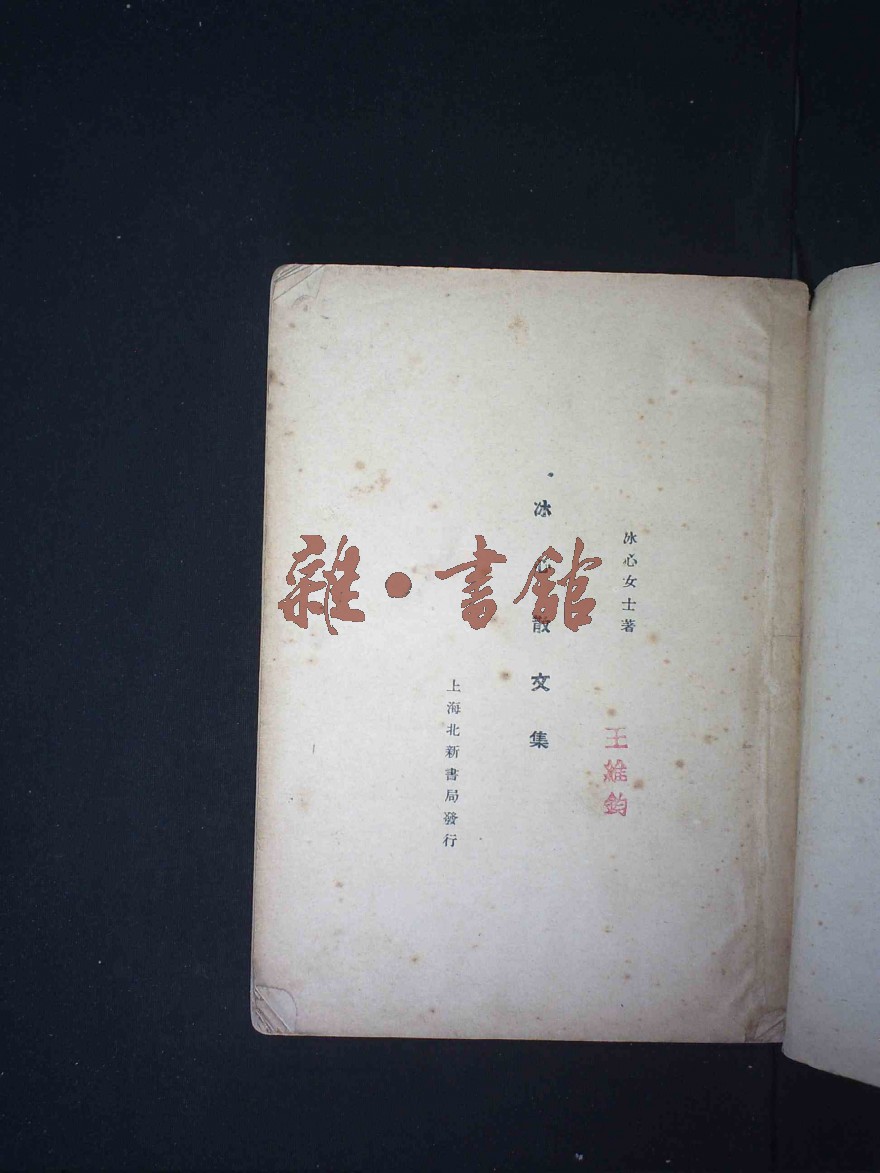 冰心女士著
王維鈞
冰心散文集
上海北新書局發行
雜·書館